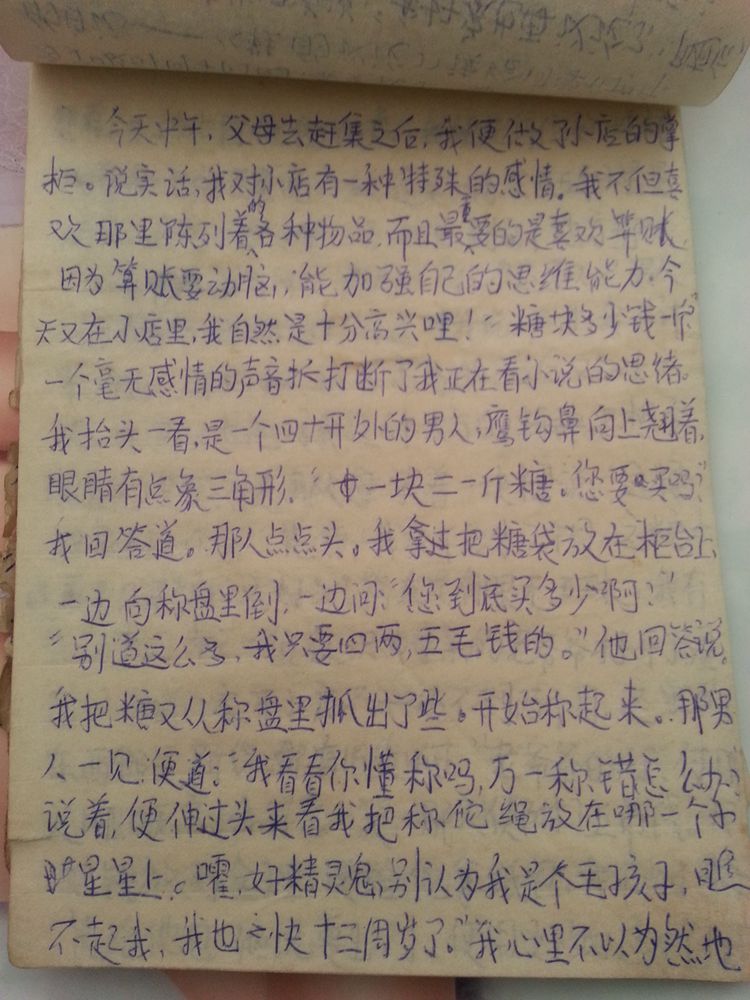 今天中午，父母去赶集之后，我便做了小店的掌
柜。说实话，我对小店有一种特殊的感情。我不但喜
欢那里陈列着的各种物品，而且最重要的是喜欢算账，
因为算账要动脑，能加强自己的思维能力。今
天又在小店里，我自然是十分高兴哩！“糖块多少钱一斤”
一个毫无感情的声音打断了我正在看小说的思绪。
我抬头一看，是一个四十开外的男人，鹰钩鼻向上翘着，
眼睛有点象三角形。“一块二一斤糖。您要买吗？”
我回答道。那人点点头。我拿过把糖袋放在柜台上，
一边向称盘里倒，一边问：“您到底买多少啊？”
“别道这么多，我只要四两，五毛钱的。”他回答说。
我把糖又从称盘里抓出了些。开始称起来。那男
人一见，便道：“我看看你懂称吗，万一称错怎么办？”
说着，便伸过头来看我把称佗绳放在哪一个小
星星上。嚯，好精灵鬼，别认为我是个毛孩子，瞧
不起我，我也快十三周岁了。”我心里不以为然地